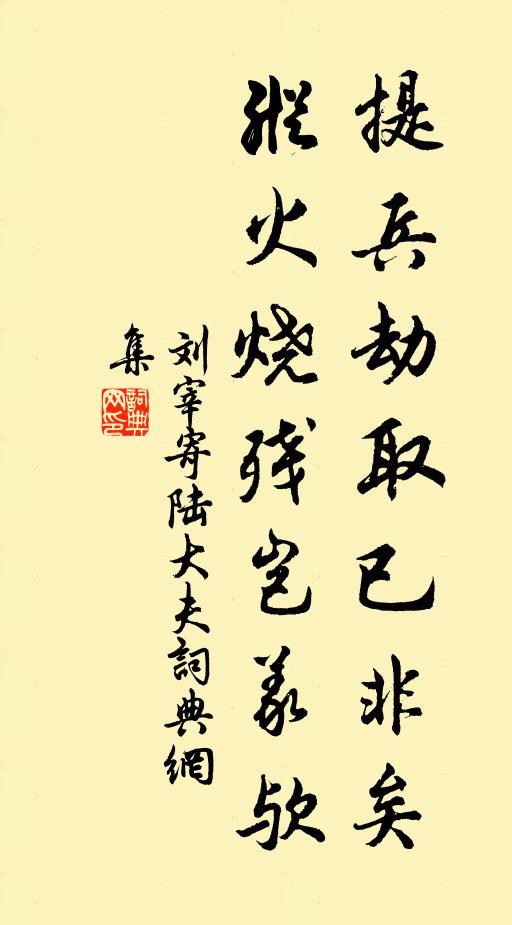 提兵劫取已非矣
纵火烧残岂义欤
刘宰寄陆大夫詞典網
集
詞典网印